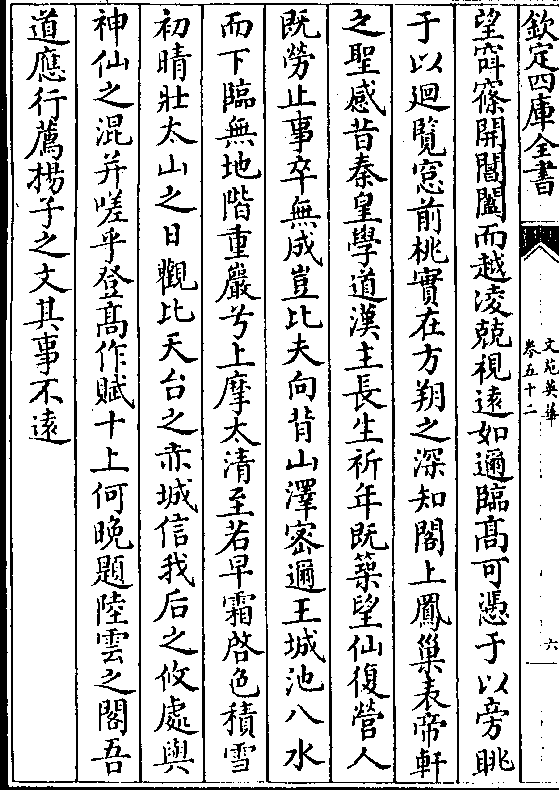 欽定四庫全書
文苑英華
卷五十二
六
望窅窱開閶闔而越淩兢視遠如邇臨髙可憑于以旁眺
于以迴覽窓前桃實在方朔之深知閣上鳳巢表帝軒
之聖感昔秦皇學道漢主長生祈年既築望仙復營人
既勞止事卒無成豈比夫向背山澤密邇王城池八水
而下臨無地階重巖兮上摩太清至若早霜啓色積雪
初晴壯太山之日觀比天台之赤城信我后之攸處與
神仙之混并嗟乎登髙作賦十上何晚題陸雲之閣吾
道應行薦揚子之文其事不遠